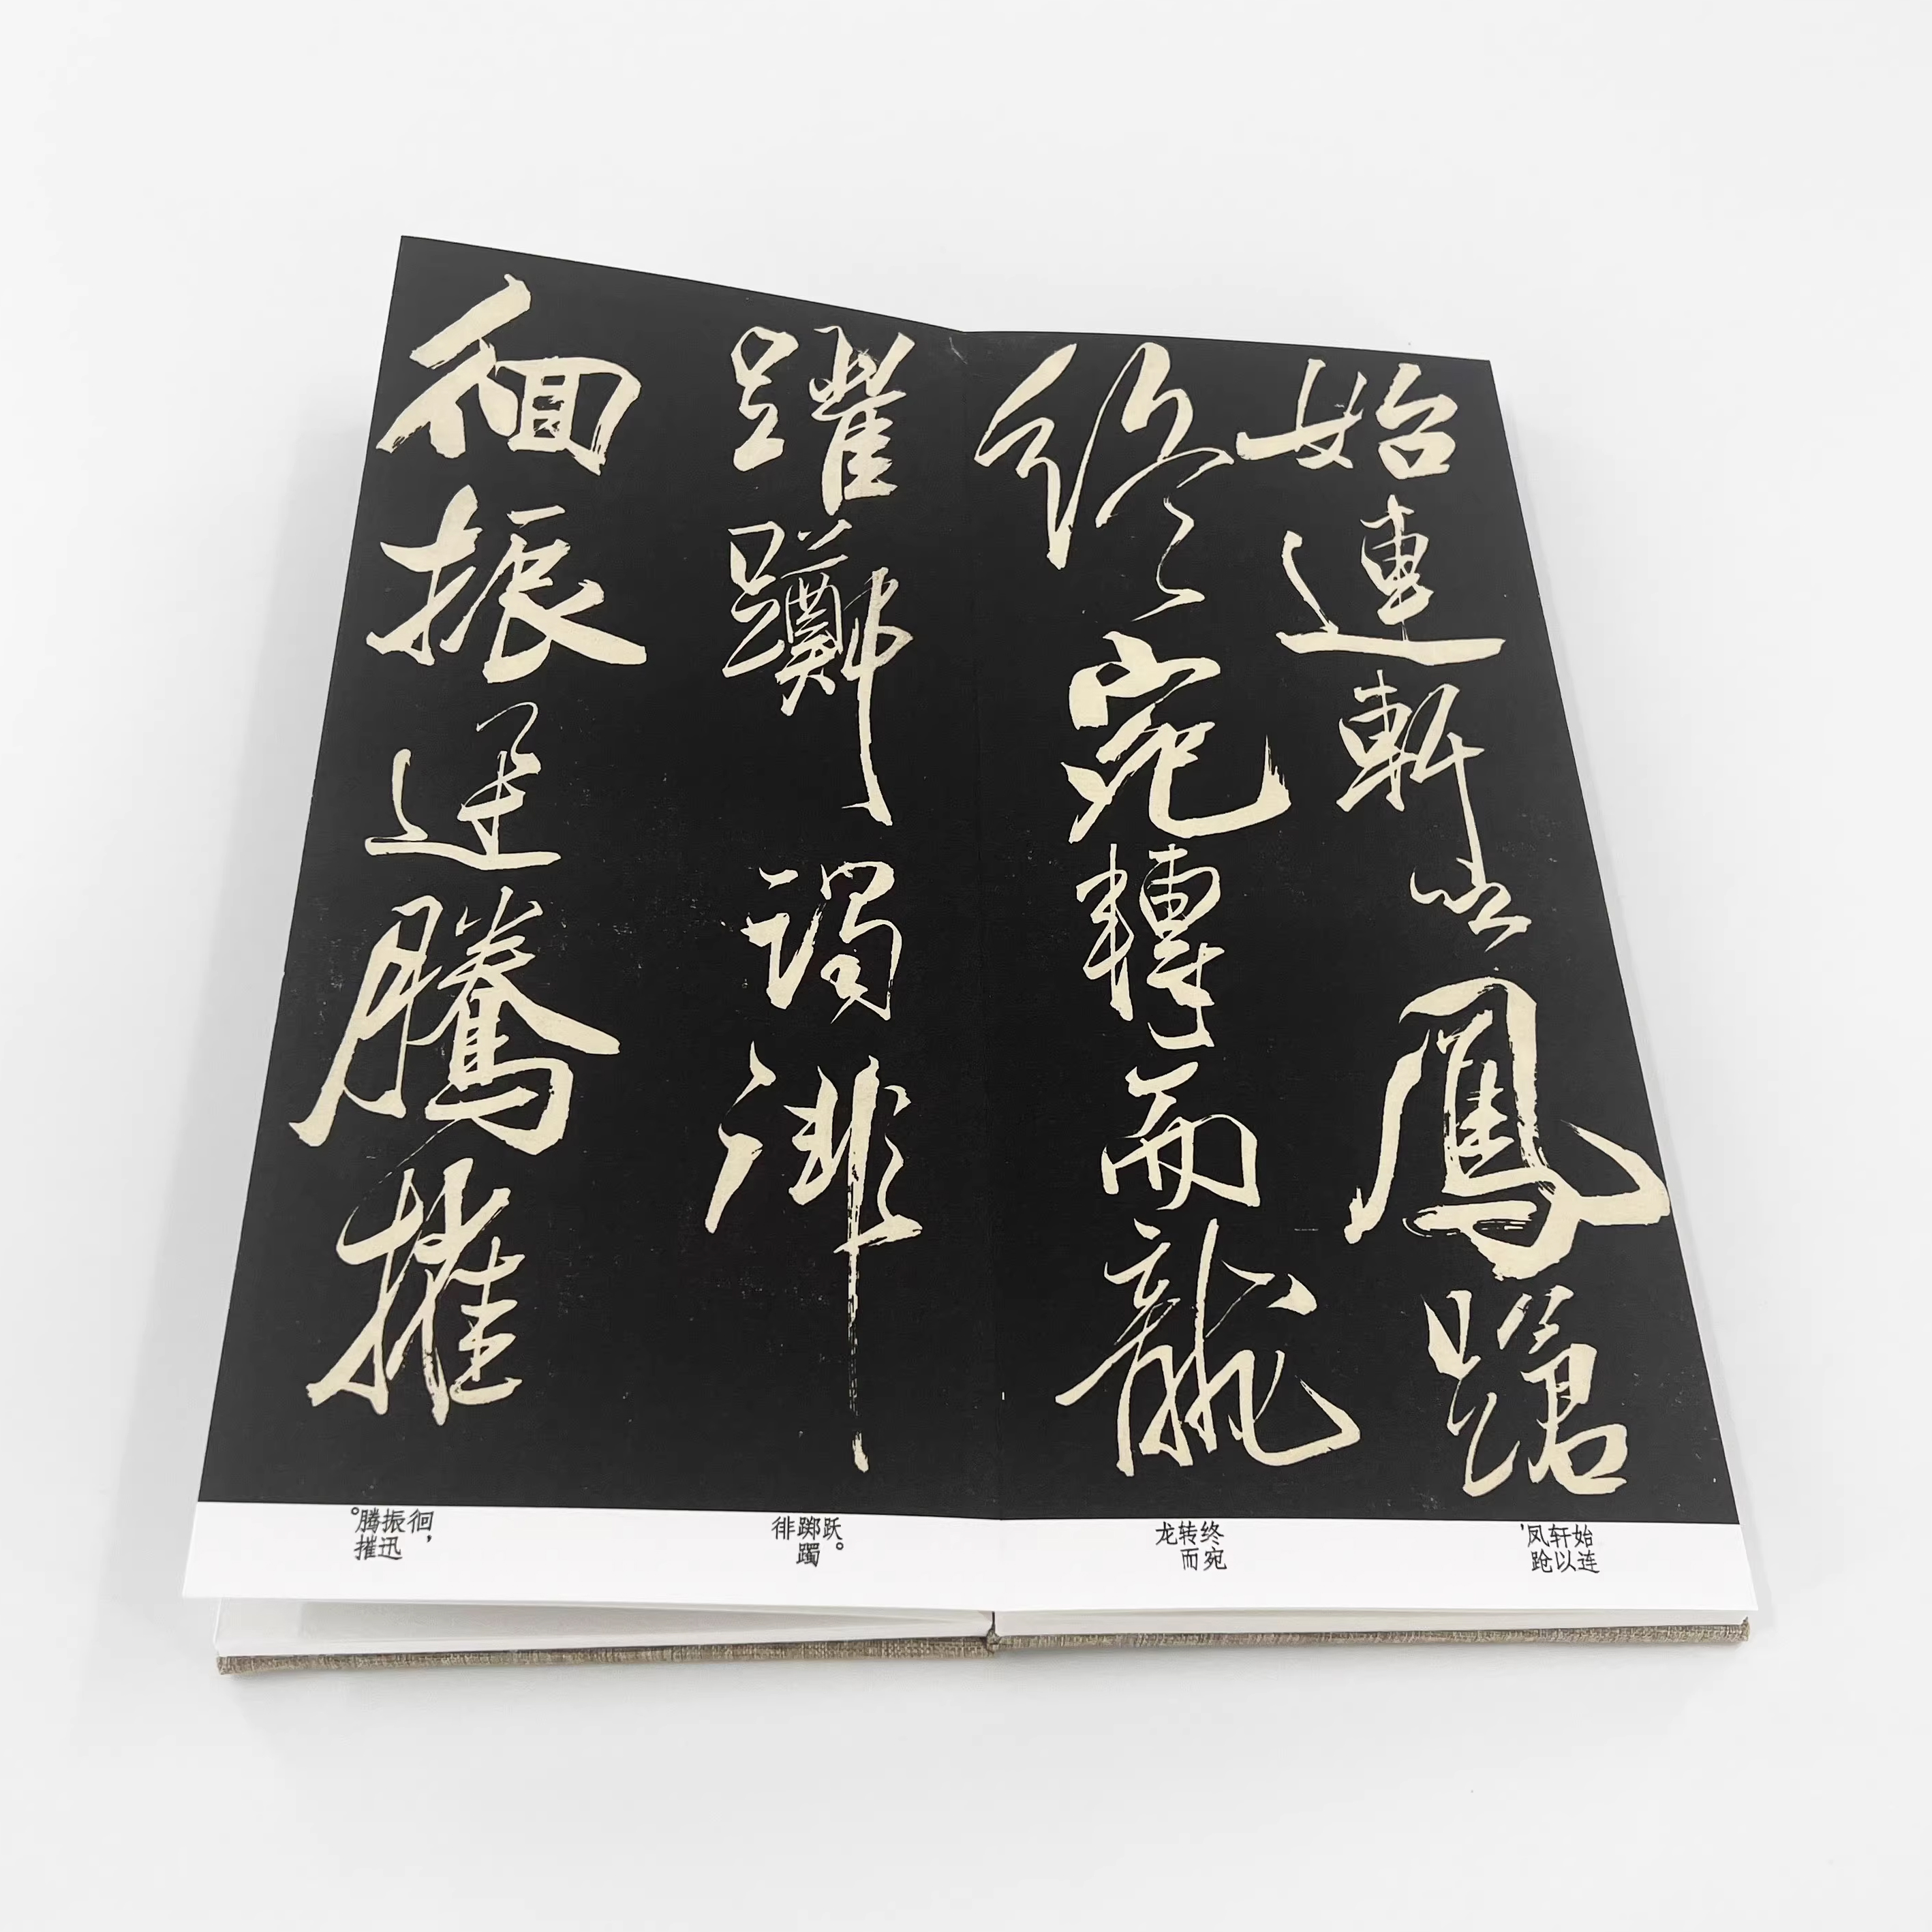 始連軒以鳳蹌
終宛轉而龍
躍躑躅徘
徊振迅騰摧
始连
轩以
凤跄，
终宛
转而
龙
跃。
踯躅
徘
徊，
振迅
腾摧。